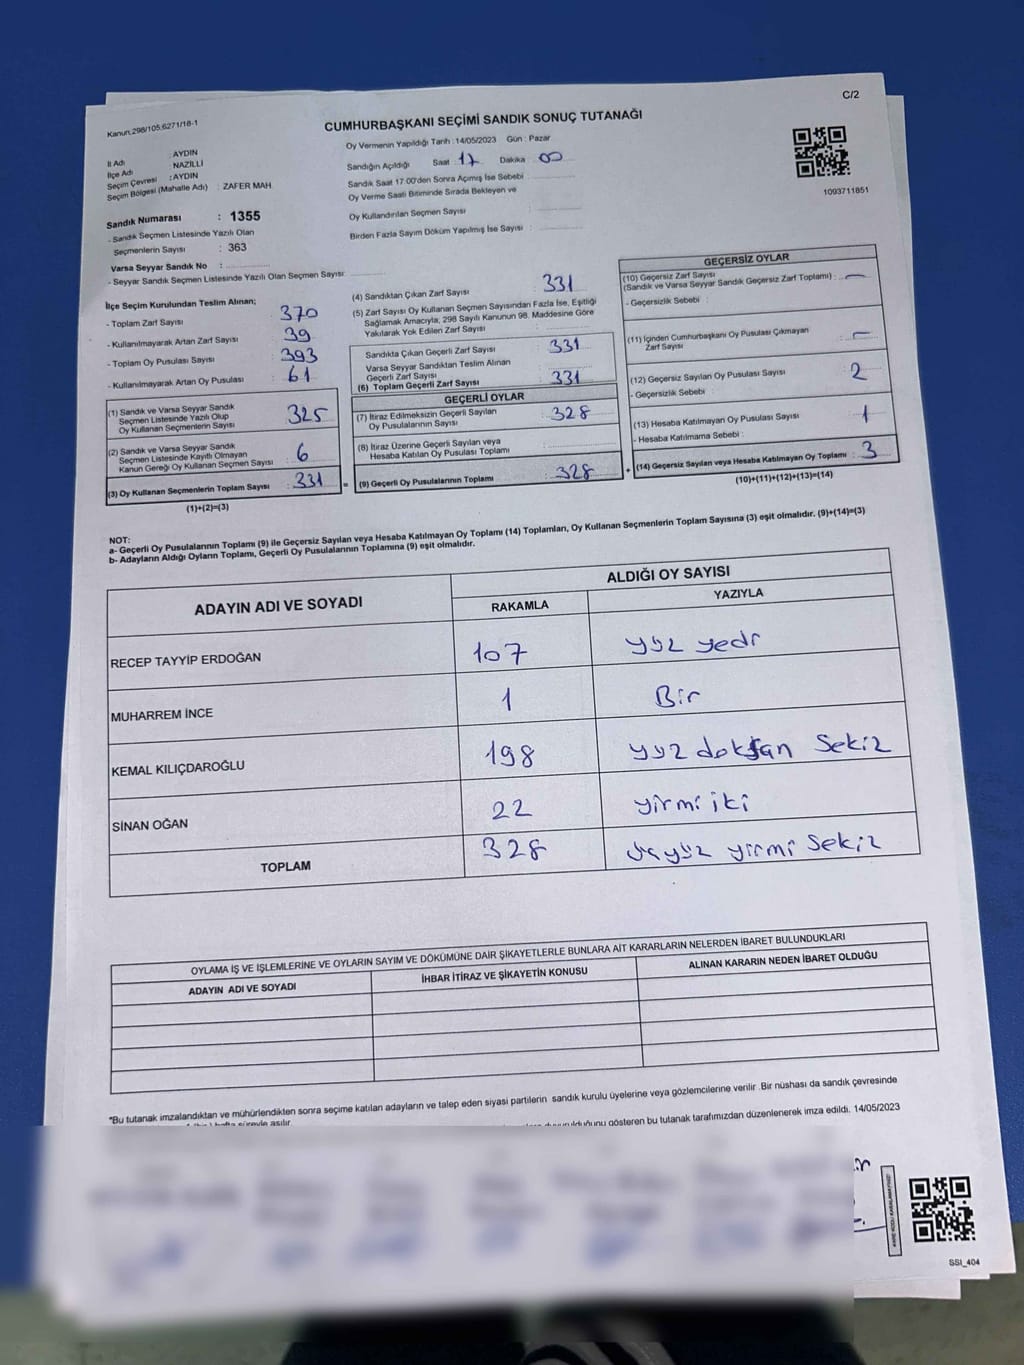 C/2
Kanun.298/105,6271/18-1
CUMHURBAŞKANI SEÇİMİ SANDIK SONUÇ TUTANAĞI
İl Adı : AYDIN
İlçe Adı NAZİLLİ
Seçim Çevresi : AYDIN
Seçim Bölgesi (Mahalle Adı) : ZAFER MAH.
Sandık Numarası : 1355
- Sandık Seçmen Listesinde Yazılı Olan
Seçmenlerin Sayısı : 363
Varsa Seyyar Sandık No :
- Seyyar Sandık Seçmen Listesinde Yazılı Olan Seçmen Sayısı:
Oy Vermenin Yapıldığı Tarih : 14/05/2023 Gün : Pazar
Sandığın Açıldığı Saat 17 Dakika 00
Sandık Saat 17:00'den Sonra Açılmış İse Sebebi
Oy Verme Saati Bitiminde Sırada Bekleyen ve
Oy Kullandırılan Seçmen Sayısı
Birden Fazla Sayım Döküm Yapılmış İse Sayısı :
1093711851
İlçe Seçim Kurulundan Teslim Alınan;
- Toplam Zarf Sayısı : 370
- Kullanılmayarak Artan Zarf Sayısı : 39
- Toplam Oy Pusulası Sayısı : 393
- Kullanılmayarak Artan Oy Pusulası : 61
(1) Sandık ve Varsa Seyyar Sandık
Seçmen Listesinde Yazılı Olup
Oy Kullanan Seçmenlerin Sayısı : 325
(2) Sandık ve Varsa Seyyar Sandık
Seçmen Listesinde Kayıtlı Olmayan
Kanun Gereği Oy Kullanan Seçmen Sayısı : 6
(3) Oy Kullanan Seçmenlerin Toplam Sayısı : 331
(1)+(2)=(3)
(4) Sandıktan Çıkan Zarf Sayısı 331
(5) Zarf Sayısı Oy Kullanan Seçmen Sayısından Fazla İse, Eşitliği
Sağlamak Amacıyla; 298 Sayılı Kanunun 98. Maddesine Göre
Yakılarak Yok Edilen Zarf Sayısı
Sandıkta Çıkan Geçerli Zarf Sayısı : 331
Varsa Seyyar Sandıktan Teslim Alınan
Geçerli Zarf Sayısı
(6) Toplam Geçerli Zarf Sayısı : 331
GEÇERLİ OYLAR
(7) İtiraz Edilmeksizin Geçerli Sayılan
Oy Pusulalarının Sayısı : 328
(8) İtiraz Üzerine Geçerli Sayılan veya
Hesaba Katılan Oy Pusulası Toplamı :
= (9) Geçerli Oy Pusulalarının Toplamı : 328
GEÇERSİZ OYLAR
(10) Geçersiz Zarf Sayısı
(Sandık ve Varsa Seyyar Sandık Geçersiz Zarf Toplamı) : —
- Geçersizlik Sebebi :
(11) İçinden Cumhurbaşkanı Oy Pusulası Çıkmayan
Zarf Sayısı : —
(12) Geçersiz Sayılan Oy Pusulası Sayısı : 2
- Geçersizlik Sebebi :
(13) Hesaba Katılmayan Oy Pusulası Sayısı : 1
- Hesaba Katılmama Sebebi :
+ (14) Geçersiz Sayılan veya Hesaba Katılmayan Oy Toplamı : 3
(10)+(11)+(12)+(13)=(14)
NOT:
a- Geçerli Oy Pusulalarının Toplamı (9) ile Geçersiz Sayılan veya Hesaba Katılmayan Oy Toplamı (14) Toplamları, Oy Kullanan Seçmenlerin Toplam Sayısına (3) eşit olmalıdır. (9)+(14)=(3)
b- Adayların Aldığı Oyların Toplamı, Geçerli Oy Pusulalarının Toplamına (9) eşit olmalıdır.
ADAYIN ADI VE SOYADI
ALDIĞI OY SAYISI
RAKAMLA YAZIYLA
RECEP TAYYİP ERDOĞAN 107 yüz yedi
MUHARREM İNCE 1 Bir
KEMAL KILIÇDAROĞLU 198 yüz doksan Sekiz
SİNAN OĞAN 22 yirmi iki
TOPLAM 328 üç yüz yirmi Sekiz
OYLAMA İŞ VE İŞLEMLERİNE VE OYLARIN SAYIM VE DÖKÜMÜNE DAİR ŞİKAYETLERLE BUNLARA AİT KARARLARIN NELERDEN İBARET BULUNDUKLARI
ADAYIN ADI VE SOYADI İHBAR İTİRAZ VE ŞİKAYETİN KONUSU ALINAN KARARIN NEDEN İBARET OLDUĞU
*Bu tutanak imzalandıktan ve mühürlendikten sonra seçime katılan adayların ve talep eden siyasi partilerin sandık kurulu üyelerine veya gözlemcilerine verilir .Bir nüshası da sandık çevresinde
(bir) hafta süreyle asılır.
duyurulduğunu gösteren bu tutanak tarafımızdan düzenlenerek imza edildi. 14/05/2023
SSI_404